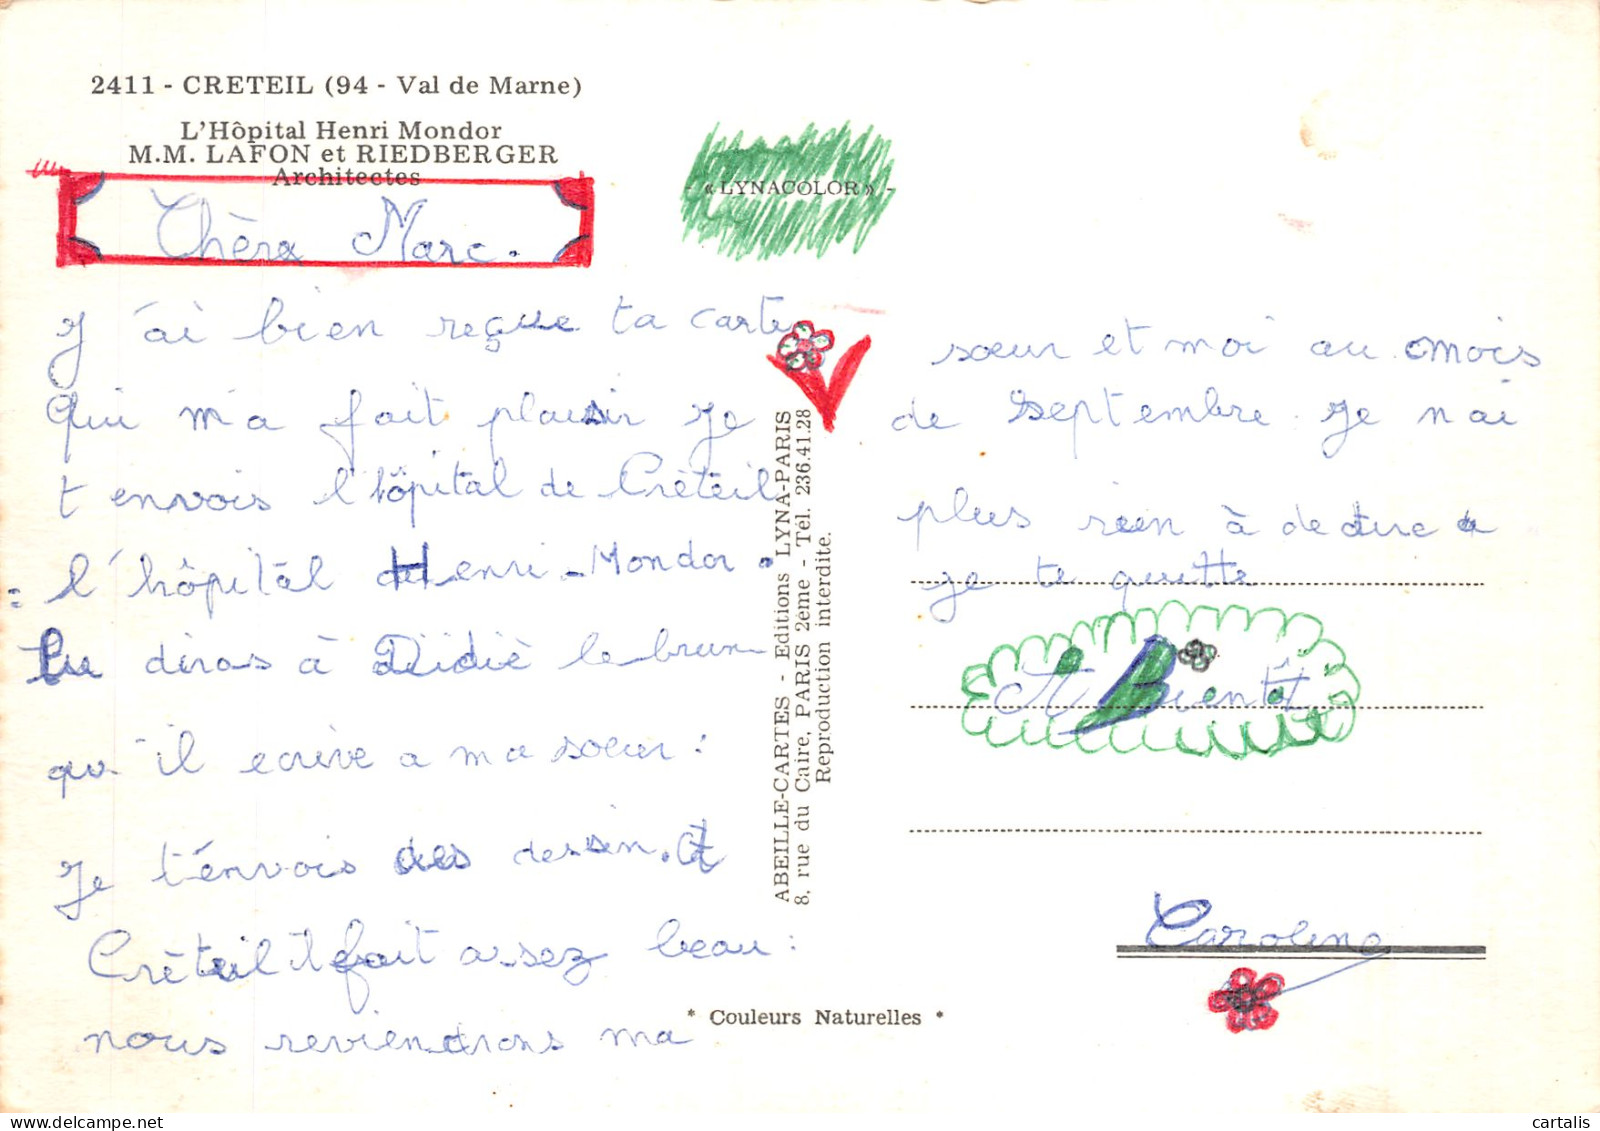 2411 - CRETEIL (94 - Val de Marne)
L'Hôpital Henri Mondor
M.M. LAFON et RIEDBERGER
Architectes
« LYNACOLOR » -
Chère Marc.
J'ai bien reçue ta carte
Qui m'a fait plaisir Je
t envois l'hôpital de Crèteil
: l'hôpital de Henri-Mondor.
tu diras à Didiè le brun
qu'il ecrive a ma soeur :
Je t'énvois des dessin. A
Crèteil il fait assez beau :
nous reviendrons ma
ABEILLE-CARTES - Editions LYNA-PARIS
8, rue du Caire, PARIS 2eme - Tél. 236.41.28
Reproduction interdite.
sœur et moi au mois
de septembre. Je n ai
plus rien à de
je te quitte
A Bientôt
Caroline
* Couleurs Naturelles *
cartalis